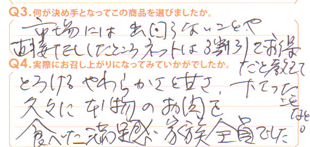 Q3. 何が決め手となってこの商品を選びましたか。
市場には出回らないことや
直接たしたところネットは3割引でお得
だと教えて
下さったことなど。
Q4. 実際にお召し上がりになってみていかがでしたか。
とろけるやわらかさと甘さ、
久々に本物のお肉を
食べた満足感。家族全員でした